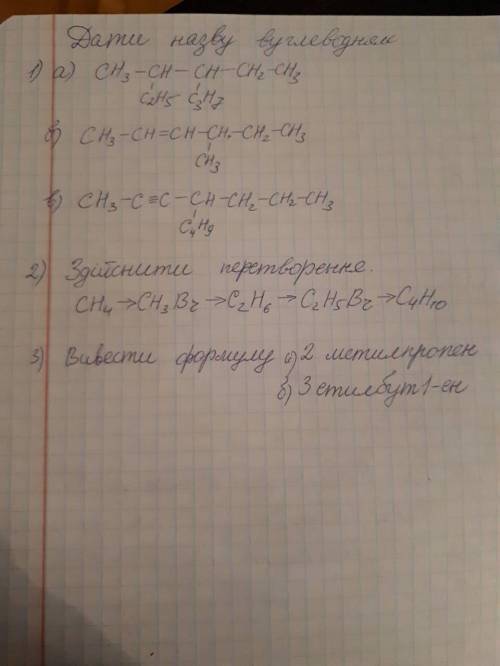 Дати назву вуглеводням
1) а) CH3-CH-CH-CH2-CH3
C2H5 C3H7
б) CH3-CH=CH-CH-CH2-CH3
CH3
в) CH3-C≡C-CH-CH2-CH2-CH3
C4H9
2) Здійснити перетворення.
CH4→CH3Br→C2H6→C2H5Br→C4H10
3) Вивести формулу а) 2 метилпропен
б) 3 етилбут 1-ен